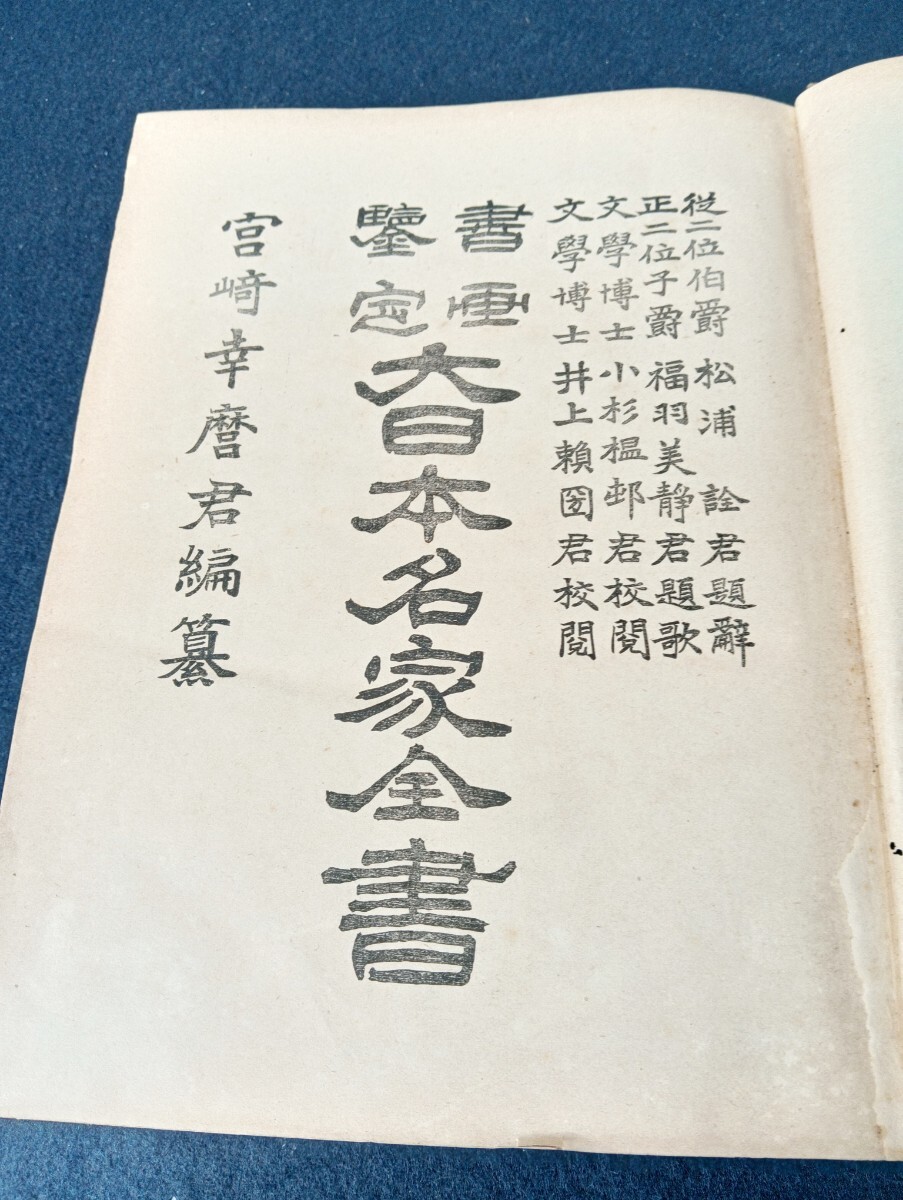 從二位伯爵 松浦 詮君題辭
正二位子爵 福羽美靜君題歌
文學博士 小杉榲邨君校閲
文學博士 井上賴囶君校閲
書画
鑒定
大日本名家全書
宮﨑幸麿君編纂